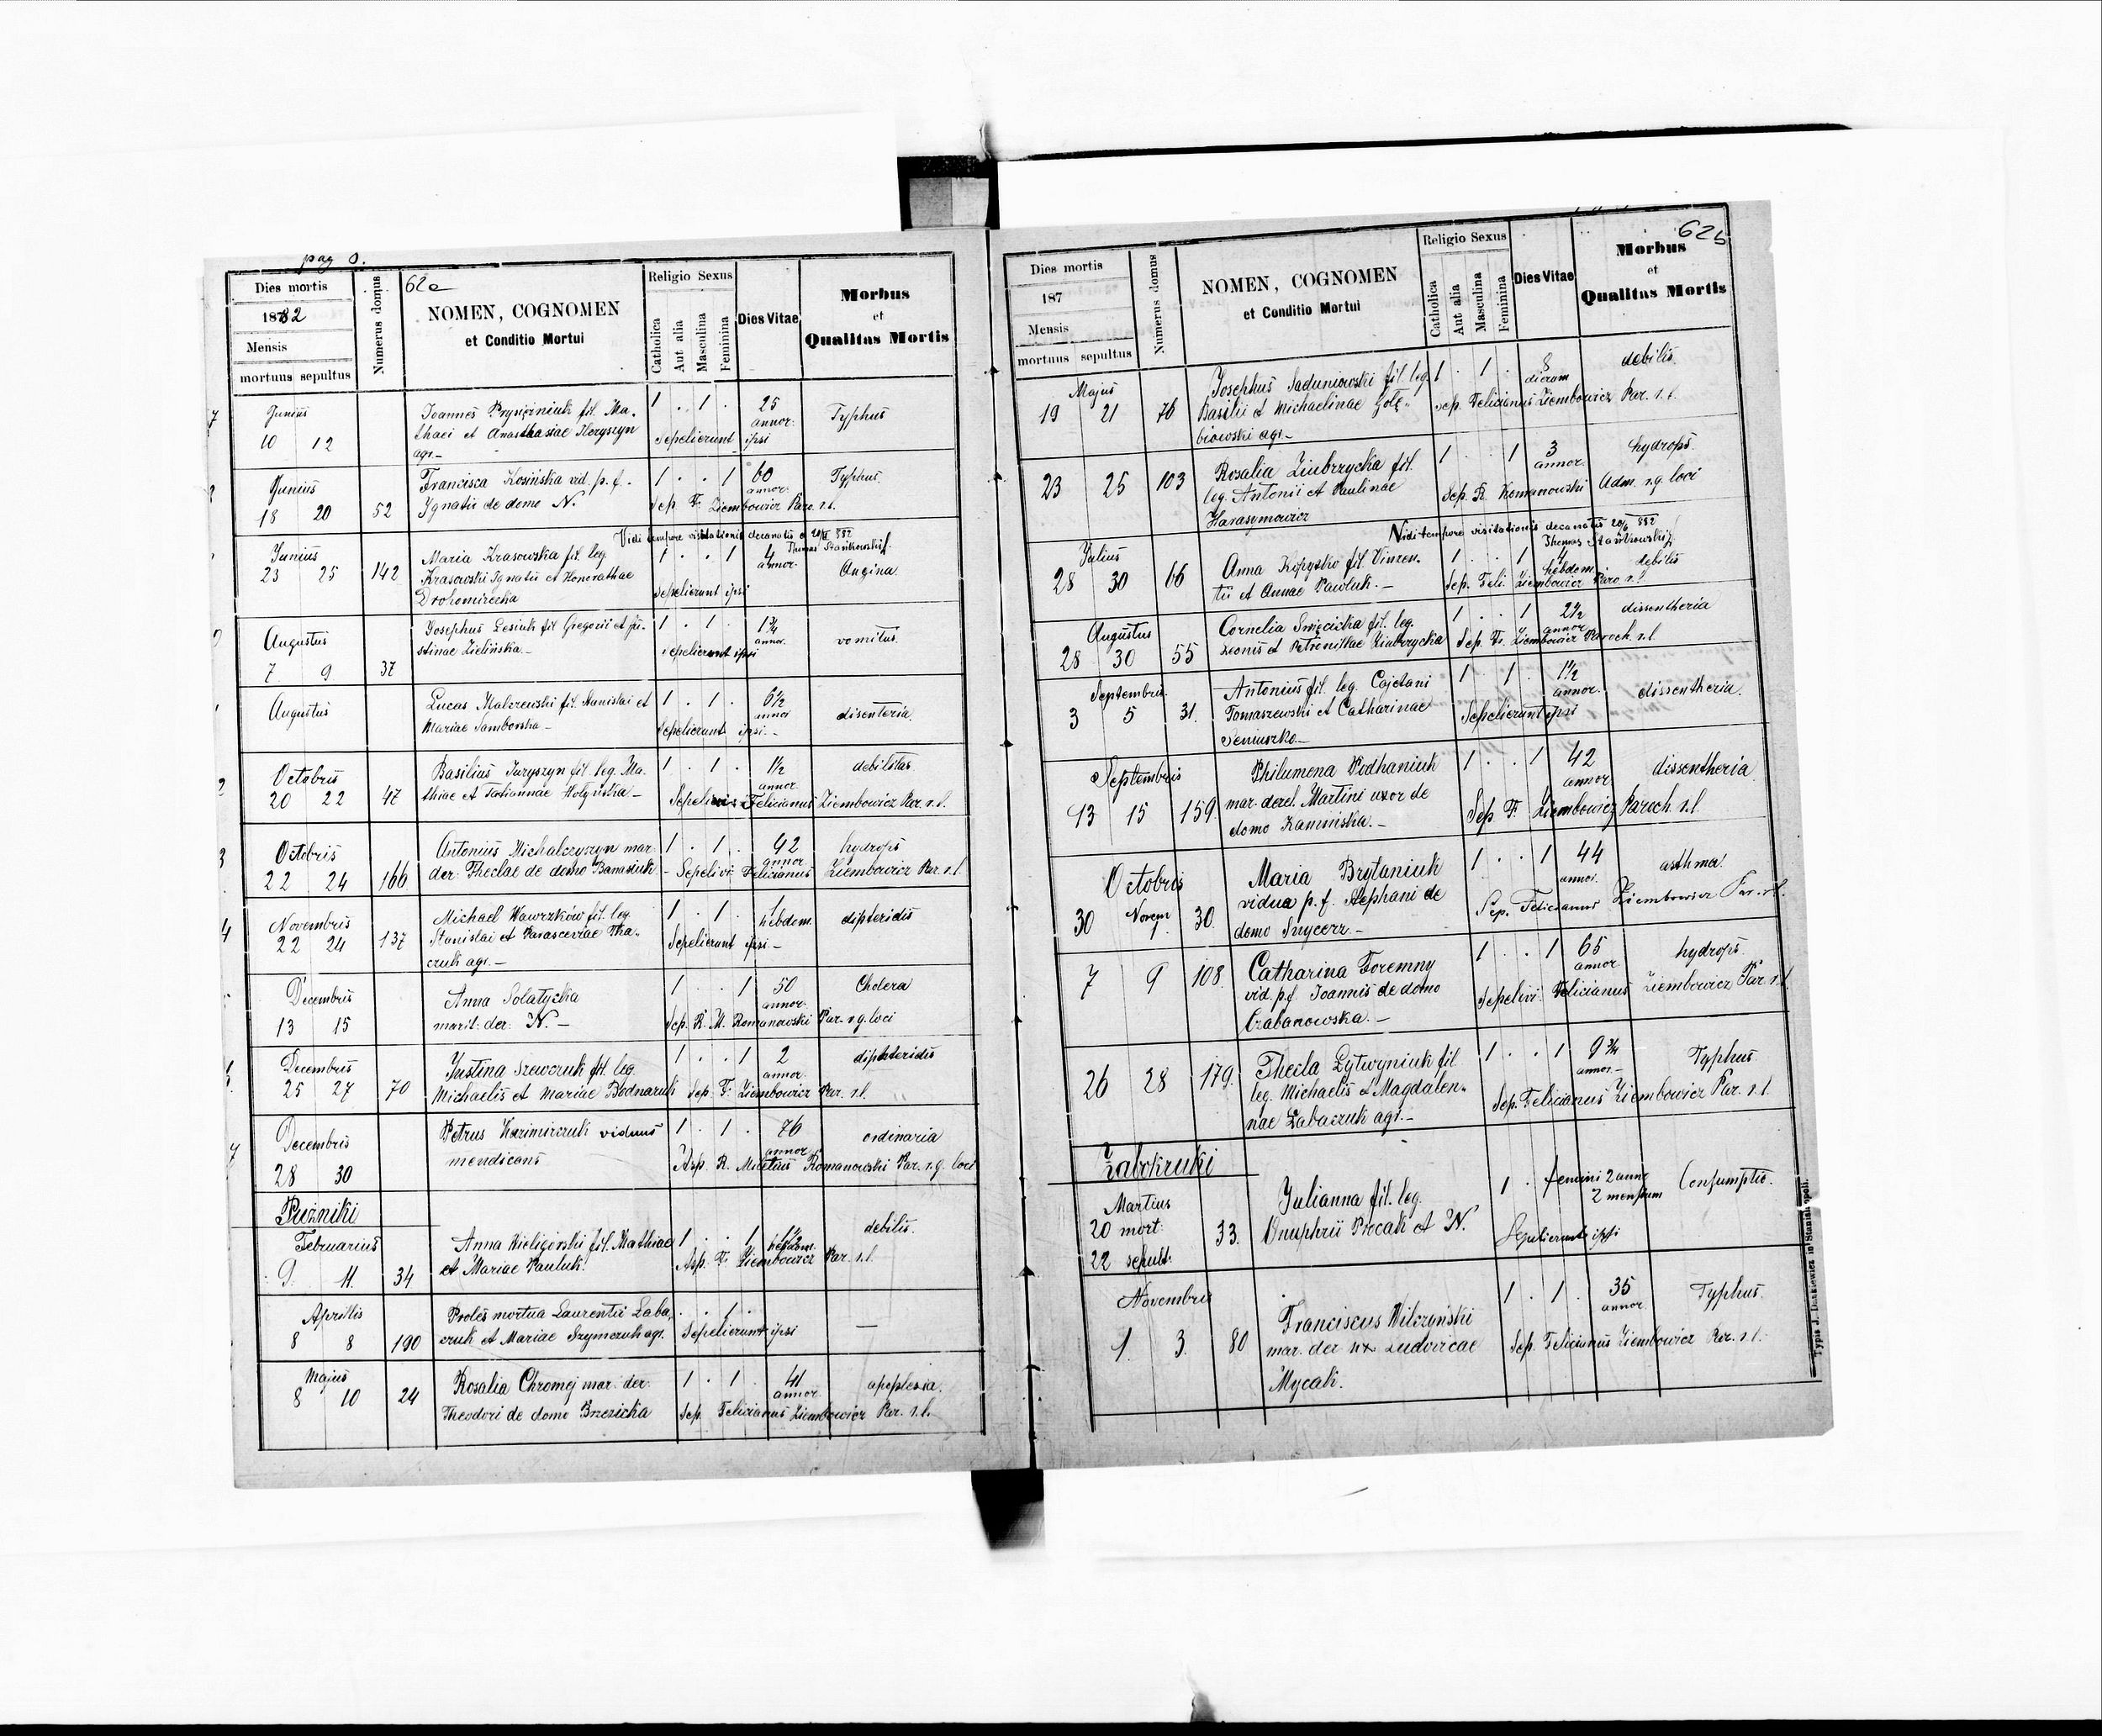 pag
Dies mortis
1882
Mensis
mortuus sepultus
Numerus domus
62a
NOMEN, COGNOMEN
et Conditio Mortui
Religio Sexus
Catholica
Aut alia
Masculina
Feminina
Dies Vitae
Morbus
et
Qualitas Mortis
Junius
10 12
Joannes fil. Ma-
thaei et Anasthasiae
agr.
1 . 1 .
25
annor.
Typhus
Sepelierunt ipsi
Junius
18 20 52
Francisca Kosińska vid. p. f.
Ignatii de domo N.
1 . . 1
60
annor.
Typhus
Sep. F. Ziembowicz Paro. r.l.
Vidi tempore visitationis decanatis
Junius
23 25 142
Maria Krasowska fil. leg.
Krasowski Ignatii et Honorathae
Drohomirecka
1 . . 1
4
annor.
Angina
Sepelierunt ipsi
Augustus
7 9 37
Josephus Lesiuk fil. Gregorii et Ju-
stinae Zielińska.—
1 . 1 .
1¾
annor.
vomitus
Sepelierunt ipsi
Augustus
Lucas Malczewski fil. Stanislai et
Mariae Samborska—
1 . 1 .
6½
annor
disenteria.
Sepelierunt ipsi.—
Octobris
20 22 47
Basilius Juryszyn fil. leg. Ma-
thiae et Tatiannae
1 . 1 .
1½
annor.
debilitas
Felicianus Ziembowicz Par. r.l.
Octobris
22 24 166
Antonius Michalczyszyn mar.
der. Theclae de domo Banasiuk
1 . 1 .
42
annor
hydrops
— Sepelivi: Felicianus Ziembowicz Par. r.l.
Novembris
22 24 137
Michael Wawrzków fil. leg.
Stanislai et Parasceviae Tka-
czuk agr.—
1 . 1 .
1
hebdom.
dipteridis
Sepelierunt ipsi—
Decembris
13 15
Anna Solatycka
marit. der. N.—
1 . . 1
50
annor.
Cholera
Sep. R. M. Romanowski Par. r.g. loci
Decembris
25 27 70
Justina Szewczuk fil. leg.
Michaelis et Mariae Bodnaruk
1 . . 1
2
annor.
diphteridis
Sep. F. Ziembowicz Par. r.l.
Decembris
28 30
Petrus Kazimirczuk viduus
mendicans
1 . 1 .
76
annor
ordinaria
R. Romanowski Par. r.g. loci
Puźniki
Februarius
9. 11. 34
Anna fil. Mathiae
et Mariae Pauluk.
1 . . 1
debilis.
F. Ziembowicz Par. r.l.
Aprillis
8 8 190
Proles mortua Laurentii Laba-
czuk et Mariae Szymczuk agr.
. . 1 .
—
Sepelierunt ipsi
Majus
8 10 24
Rosalia Chromej mar. der.
Theodori de domo Brzezicka
1 . 1 .
41
annor
apoplexia.
Sep. Felicianus Ziembowicz Par. r.l.
62b
Dies mortis
187
Mensis
mortuus sepultus
Numerus domus
NOMEN, COGNOMEN
et Conditio Mortui
Religio Sexus
Catholica
Aut alia
Masculina
Feminina
Dies Vitae
Morbus
et
Qualitas Mortis
Majus
19 21 76
Josephus Saduniowski fil. leg.
Basilii et Michaelinae Gołę-
biowski agr.—
1 . 1 .
8
dierum
debilis.
Sep. Felicianus Ziembowicz Par. r.l.
23 25 103
Rosalia Ziubrzycka fil.
leg. Antonii et Paulinae
Harasymowicz
1 . . 1
3
annor.
hydrops.
Sep. R. Romanowski Adm. r.g. loci
Vidi tempore visitationis decanatis 20/6 882
Thomas Stankowski
Julius
28 30 66
Anna Kopystko fil. Vincen-
tii et Annae Pawluk.—
1 . . 1
4
hebdom.
debilis
Sep. Feli. Ziembowicz Paro. r.l.
Augustus
28 30 55
Cornelia Święcicka fil. leg.
Leonis et Petronillae Ziubrzycka
1 . . 1
2½
annor
dissentheria
Sep. F. Ziembowicz Paroch. r.l.
Septembris
3 5 31.
Antonius fil. leg. Cajetani
Tomaszewski et Catharinae
Seniuszko—
1 . 1 .
1½
annor.
dissentheria.
Sepelierunt ipsi
Septembris
13 15 159.
Philumena Podhaniuk
mar. derel. Martini uxor de
domo Kamińska.—
1 . . 1
42
annor
dissentheria
Sep. F. Ziembowicz Paroch. r.l.
Octobris
30 Novem 1. 30.
Maria Brytaniuk
vidua p. f. Stephani de
domo Snycerz—
1 . . 1
44
annor.
asthma.
Sep. Felicianus Ziembowicz Par. r.l.
7 9 108.
Catharina Foremny
vid. p.f. Joannis de domo
Czabanowska.—
1 . . 1
65
annor
hydrops
Sepelivi: Felicianus Ziembowicz Par. r.l.
26 28 179.
Thecla Lytwyniuk fil
leg. Michaelis & Magdalen-
nae Labaczuk agr.—
1 . . 1
9¾
annor.—
Typhus
Sep. Felicianus Ziembowicz Par. r.l.
Żabokruki
Martius
20 mort:
22 sepult:
33.
Julianna fil. leg.
Onuphrii Procak et N.
1 . femini 2 annr
2 mensium
Consumptio.
Sepelierunt ipsi
Novembris
1. 3. 80
Franciscus Wilczyński
mar. der ux Ludovicae
Mycak.
1 . 1 .
35
annor.
Typhus.
Sep. Felicianus Ziembowicz Par. r.l.
Typis J. Dankiewicz in Stanislaopoli.